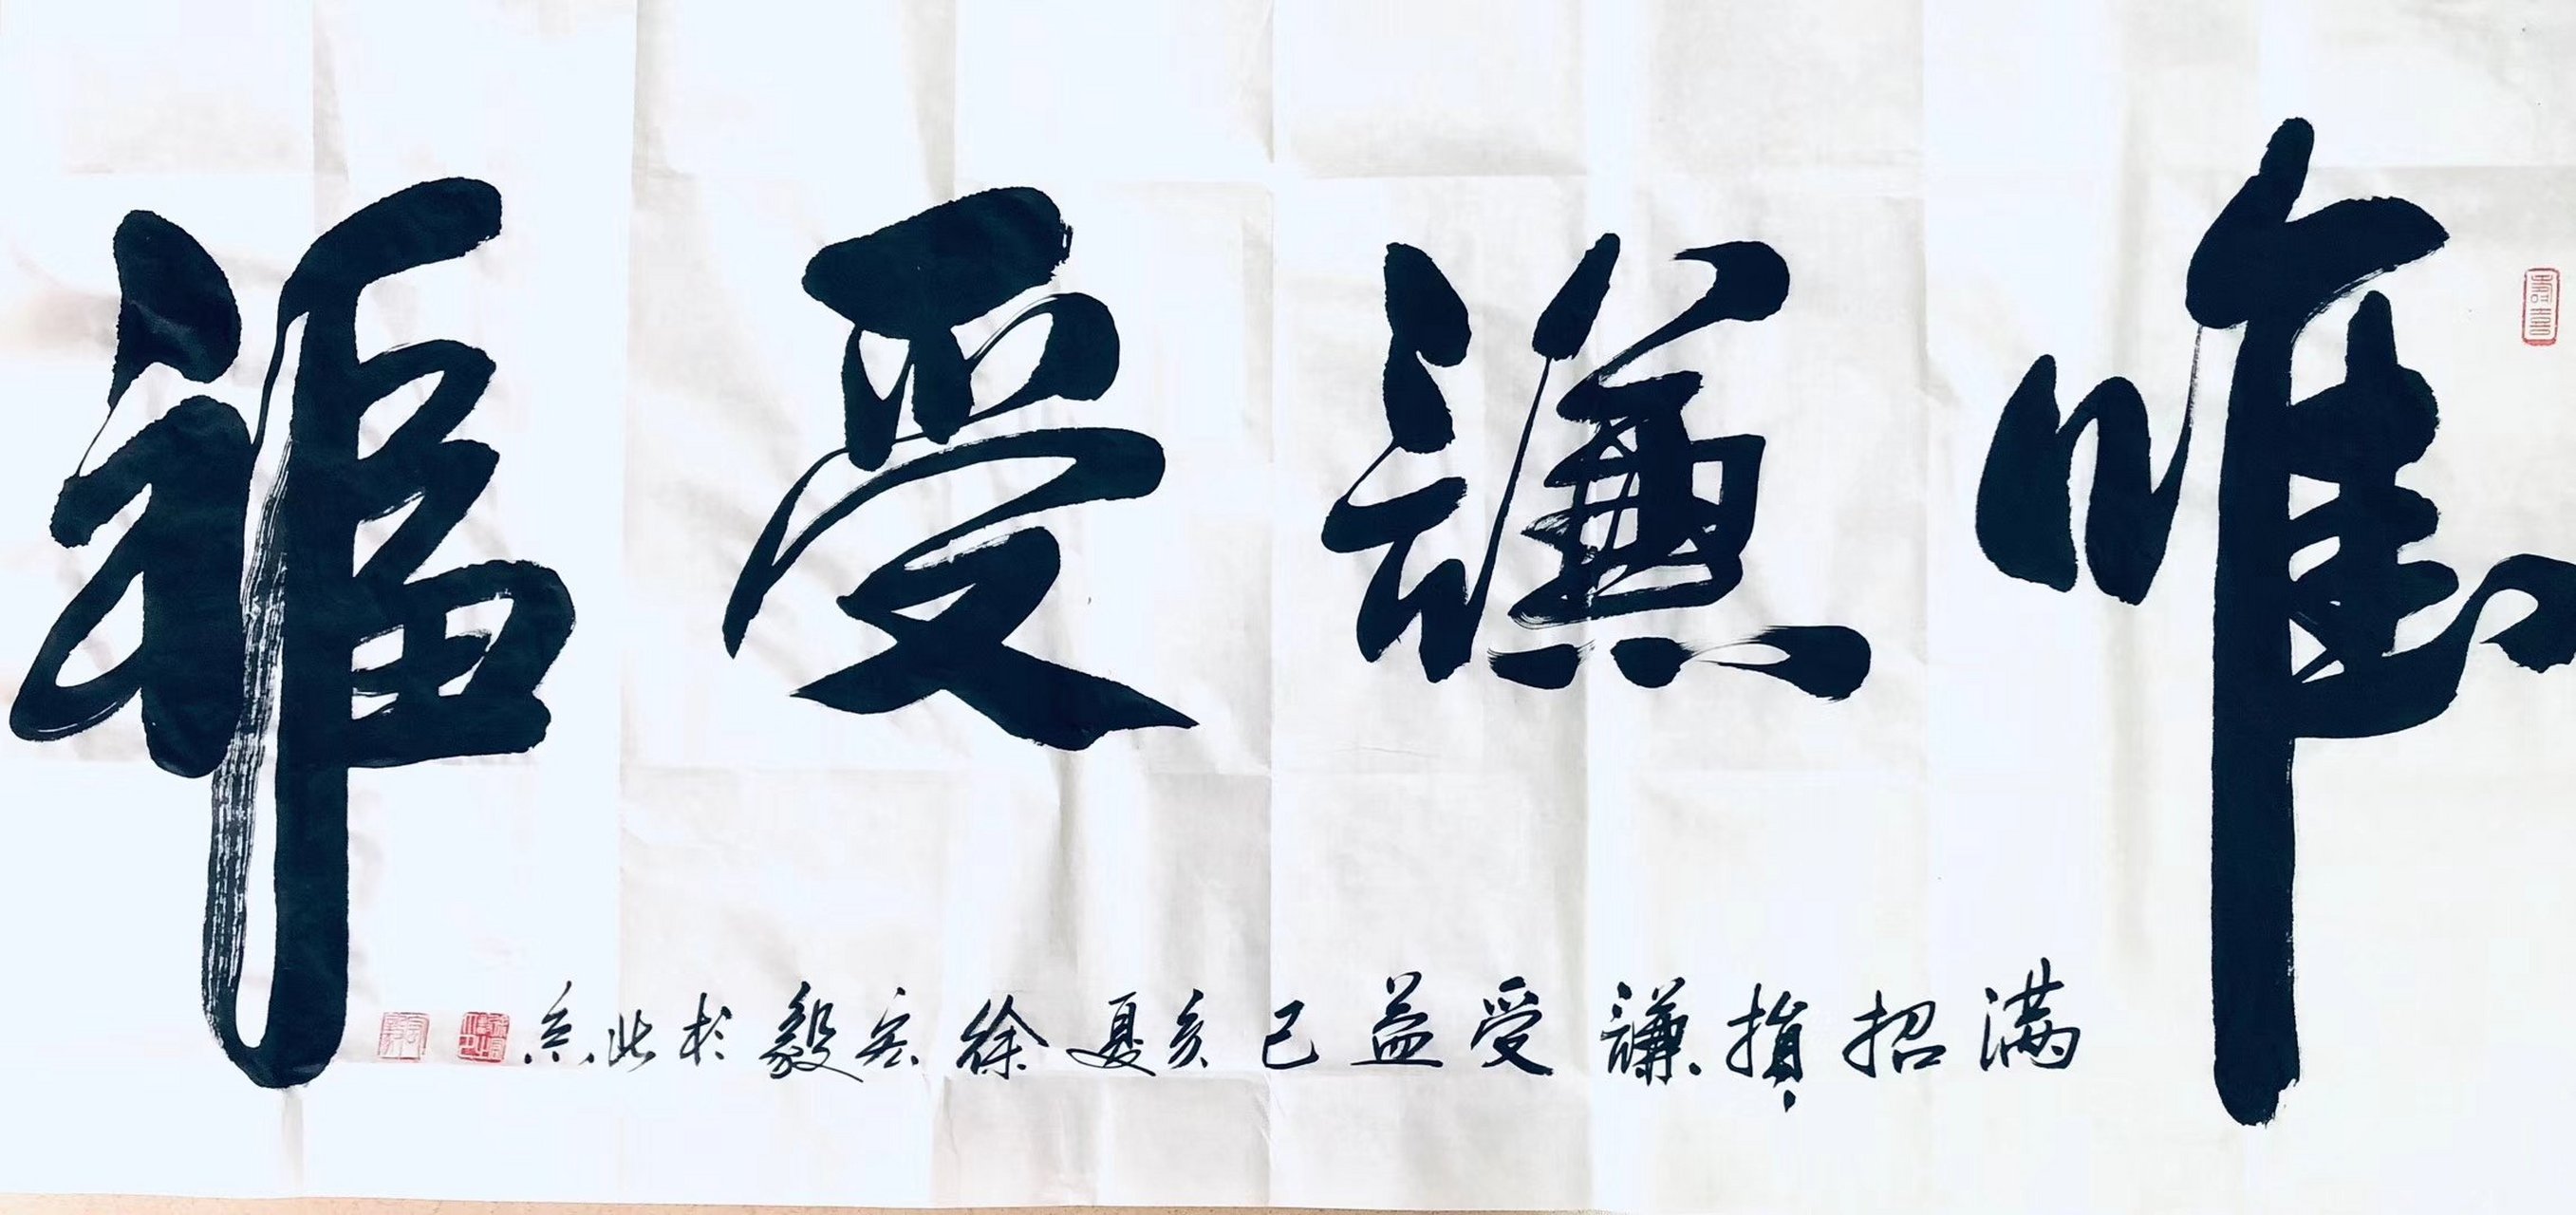 唯謙受福
满招損謙受益己亥夏徐宏毅於北京